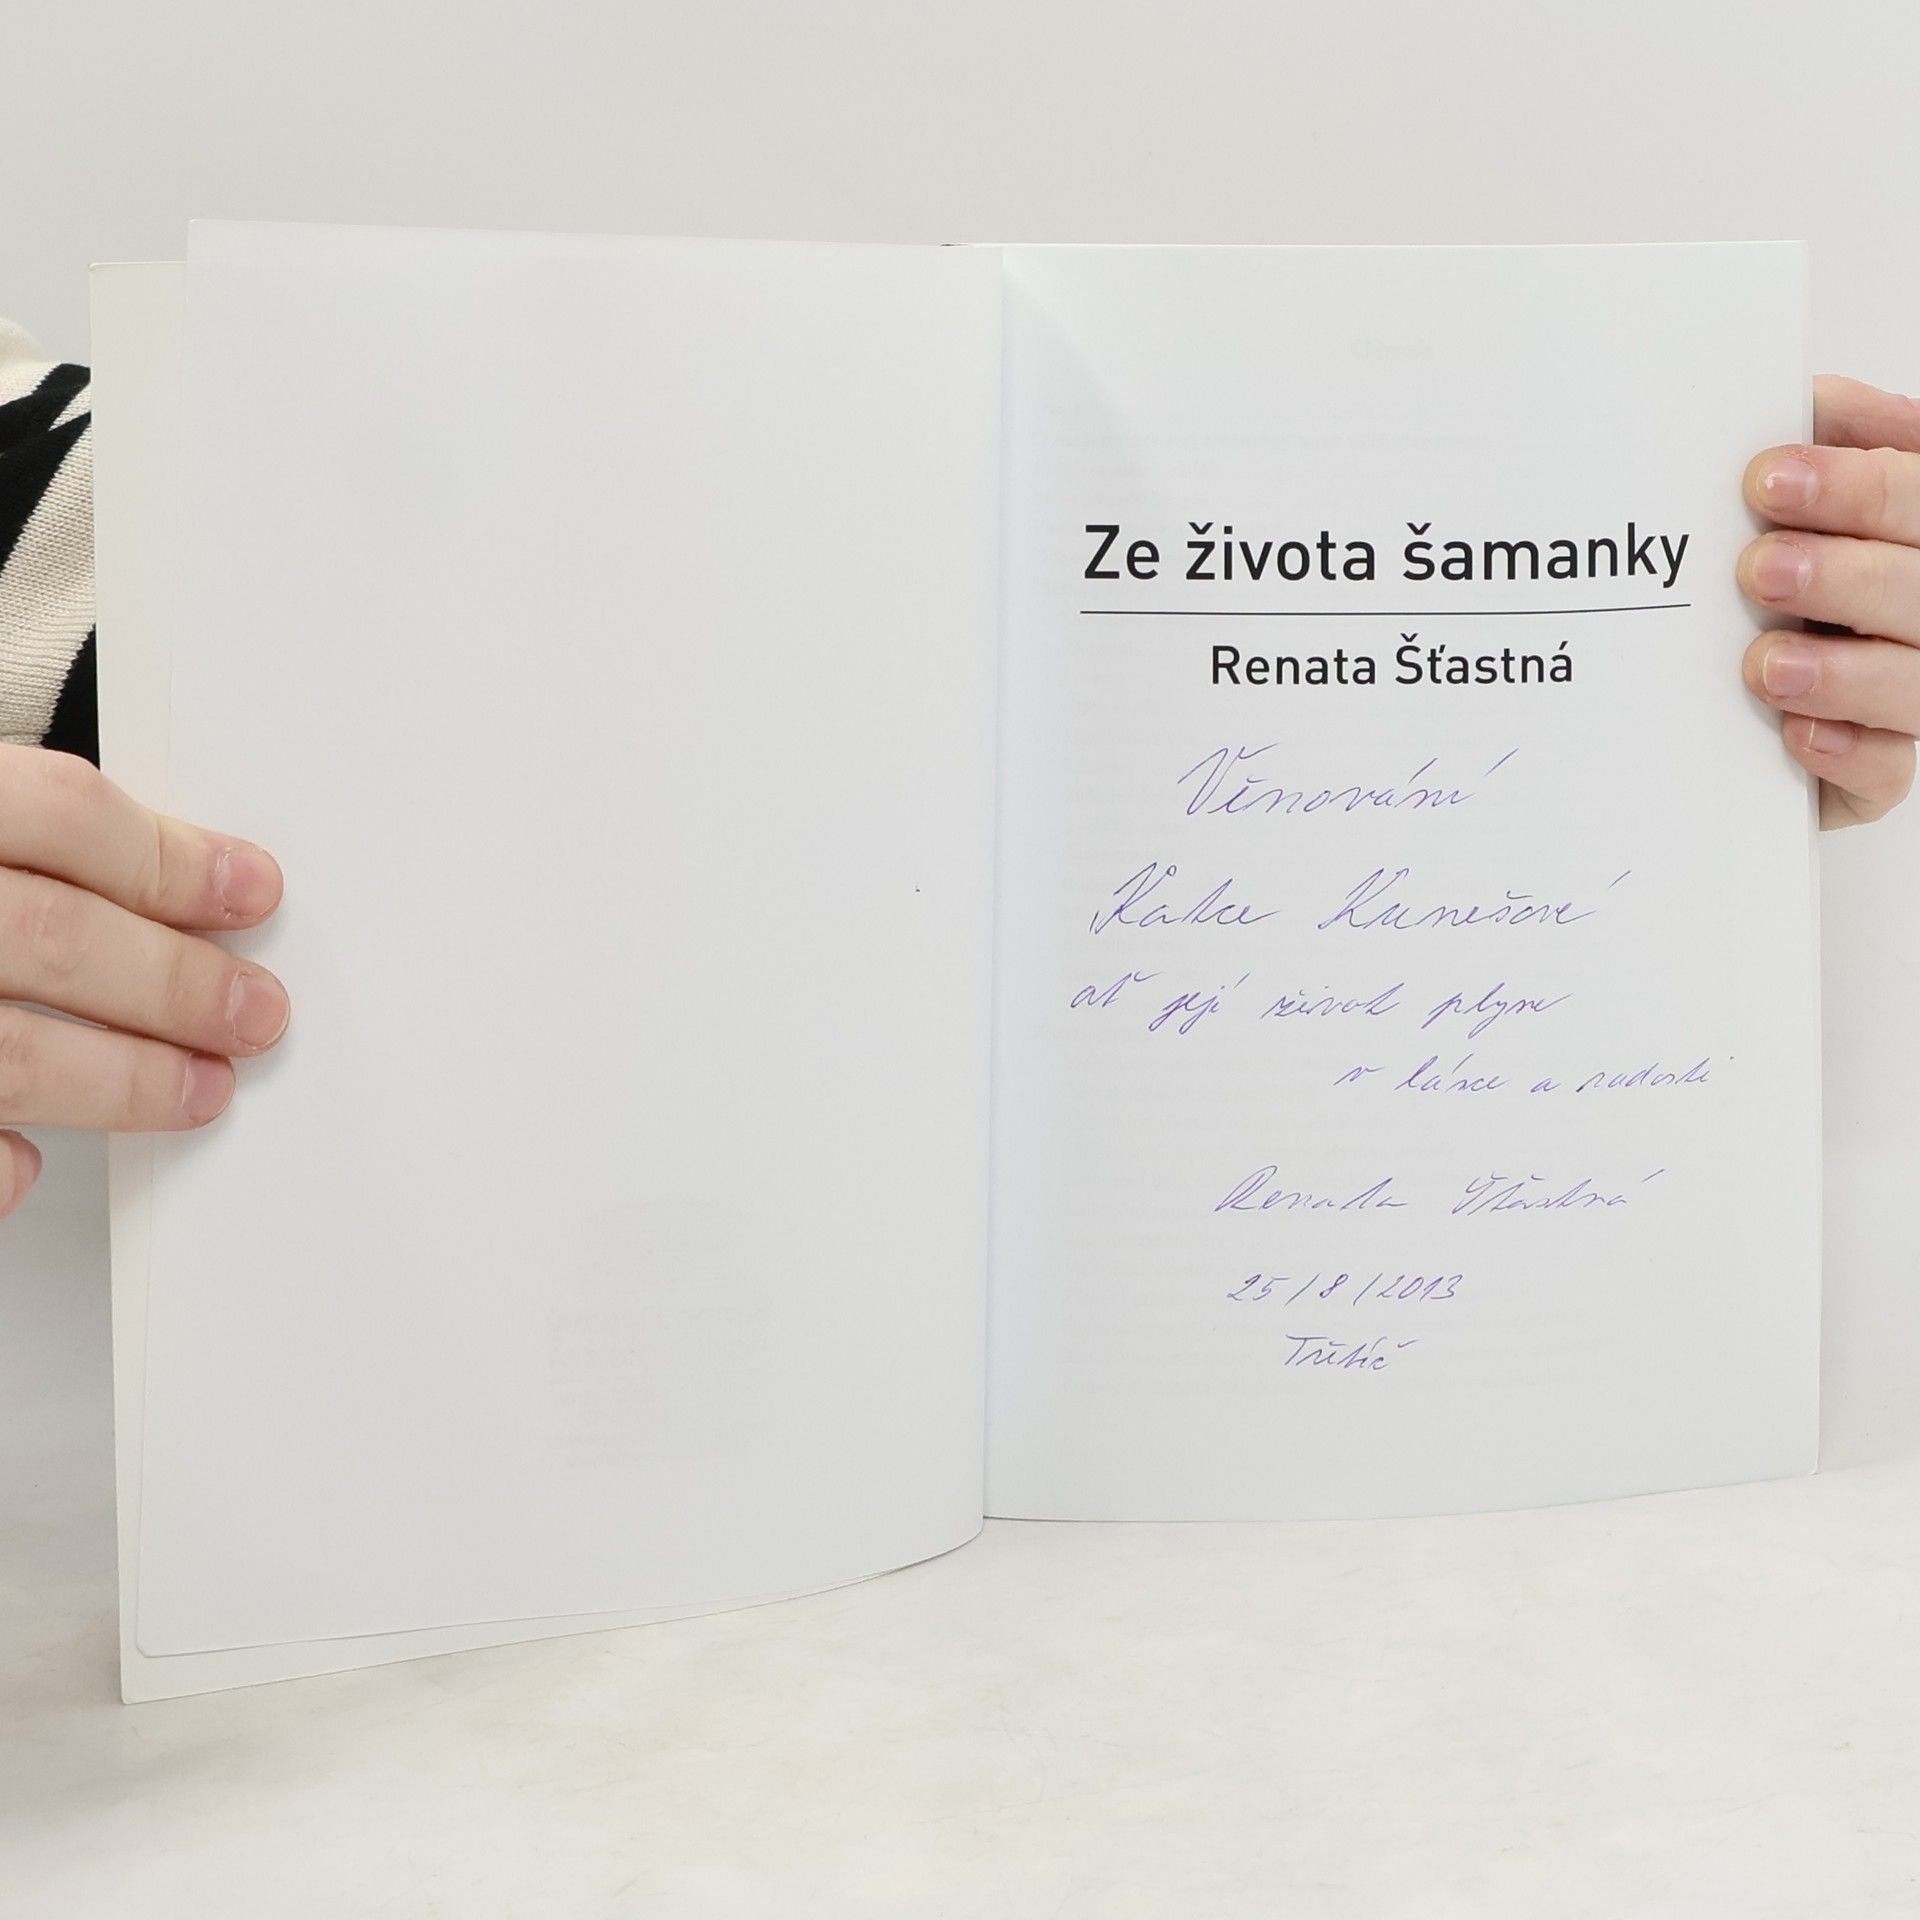 Ze života šamanky
Renata Šťastná
Věnování
Katce Kunešové
ať její život plyne
v lásce a radosti
Renata Šťastná
25/8/2013
Třetíč